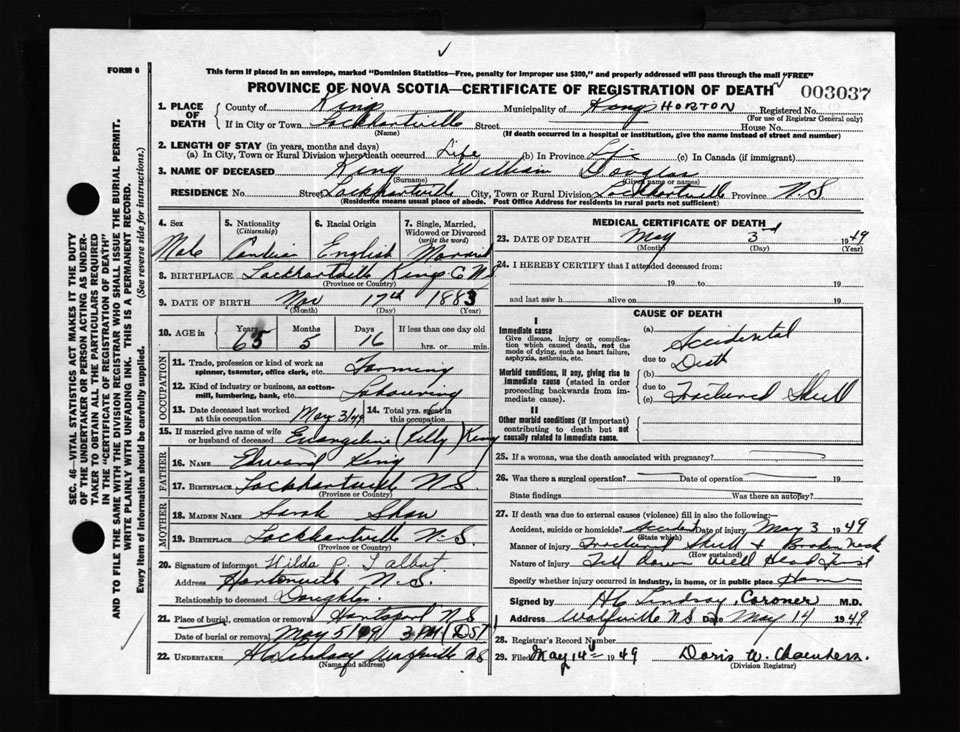 FORM 6
This form if placed in an envelope, marked "Dominion Statistics—Free, penalty for improper use $300," and properly addressed will pass through the mail "FREE"
PROVINCE OF NOVA SCOTIA—CERTIFICATE OF REGISTRATION OF DEATH
003037
1. PLACE OF DEATH
County of Kings Municipality of Kings HORTON Registered No.
(For use of Registrar General only)
If in City or Town Lockhartville Street House No.
(Name) (If death occurred in a hospital or institution, give the name instead of street and number)
2. LENGTH OF STAY (in years, months and days)
(a) In City, Town or Rural Division where death occurred Life (b) In Province Life (c) In Canada (if immigrant)
3. NAME OF DECEASED King William Douglas
(Surname) (Given name or names)
RESIDENCE No. Street Lockhartville City, Town or Rural Division Lockhartville Province N.S
(Residence means usual place of abode. Post Office Address for residents in rural parts not sufficient)
4. Sex 5. Nationality 6. Racial Origin 7. Single, Married, Widowed or Divorced
(Citizenship) (write the word)
Male English Married
8. BIRTHPLACE Lockhartville Kings Co N.S
(Province or Country)
9. DATE OF BIRTH Nov 17th 1883
(Month) (Day) (Year)
10. AGE in Years Months Days If less than one day old
65 5 16 hrs. or min.
OCCUPATION
11. Trade, profession or kind of work as spinner, teamster, office clerk, etc. Farming
12. Kind of industry or business, as cotton-mill, lumbering, bank, etc. Labouring
13. Date deceased last worked at this occupation May 3/49 14. Total yrs. spent in this occupation
15. If married give name of wife or husband of deceased Evangeline (Lilly) King
FATHER
16. NAME Edward King
17. BIRTHPLACE Lockhartville N.S.
(Province or Country)
MOTHER
18. MAIDEN NAME Sarah Shaw
19. BIRTHPLACE Lockhartville N.S.
(Province or Country)
20. Signature of informant Hilda P. Talbot
Address Hantsport N.S.
Relationship to deceased Daughter
21. Place of burial, cremation or removal Hantsport N.S
Date of burial or removal May 5/49 3 PM
22. UNDERTAKER HC Lindsay Wolfville N.S
(Name and address)
MEDICAL CERTIFICATE OF DEATH
23. DATE OF DEATH May 3rd 1949
(Month) (Day) (Year)
24. I HEREBY CERTIFY that I attended deceased from:
19 to 19
and last saw h alive on 19
CAUSE OF DEATH
I
Immediate cause
Give disease, injury or complication which caused death, not the mode of dying, such as heart failure, asphyxia, asthenia, etc.
(a) Accidental
due to Death
Morbid conditions, if any, giving rise to immediate cause (stated in order proceeding backwards from immediate).
(b)
due to
(c) Fractured Skull
II
Other morbid conditions (if important) contributing to death but not causally related to immediate cause.
25. If a woman, was the death associated with pregnancy?
26. Was there a surgical operation? Date of operation 19
State findings Was there an autopsy?
27. If death was due to external causes (violence) fill in also the following:—
Accident, suicide or homicide? Accident Date of injury May 3 1949
(State which)
Manner of injury Fractured Skull & Broken Neck
(How sustained)
Nature of injury Fell down Well Head First
Specify whether injury occurred in industry, in home, or in public place Home
Signed by HC Lindsay, Coroner M.D.
Address Wolfville N.S Date May 14 1949
28. Registrar's Record Number
29. Filed May 14th 1949 Doris W. Chambers
(Division Registrar)
SEC. 46—VITAL STATISTICS ACT MAKES IT THE DUTY
OF THE UNDERTAKER OR PERSON ACTING AS UNDER-
TAKER TO OBTAIN ALL THE PARTICULARS REQUIRED
IN THE "CERTIFICATE OF REGISTRATION OF DEATH"
AND TO FILE THE SAME WITH THE DIVISION REGISTRAR WHO SHALL ISSUE THE BURIAL PERMIT.
WRITE PLAINLY WITH UNFADING INK. THIS IS A PERMANENT RECORD.
Every item of information should be carefully supplied. (See reverse side for instructions.)